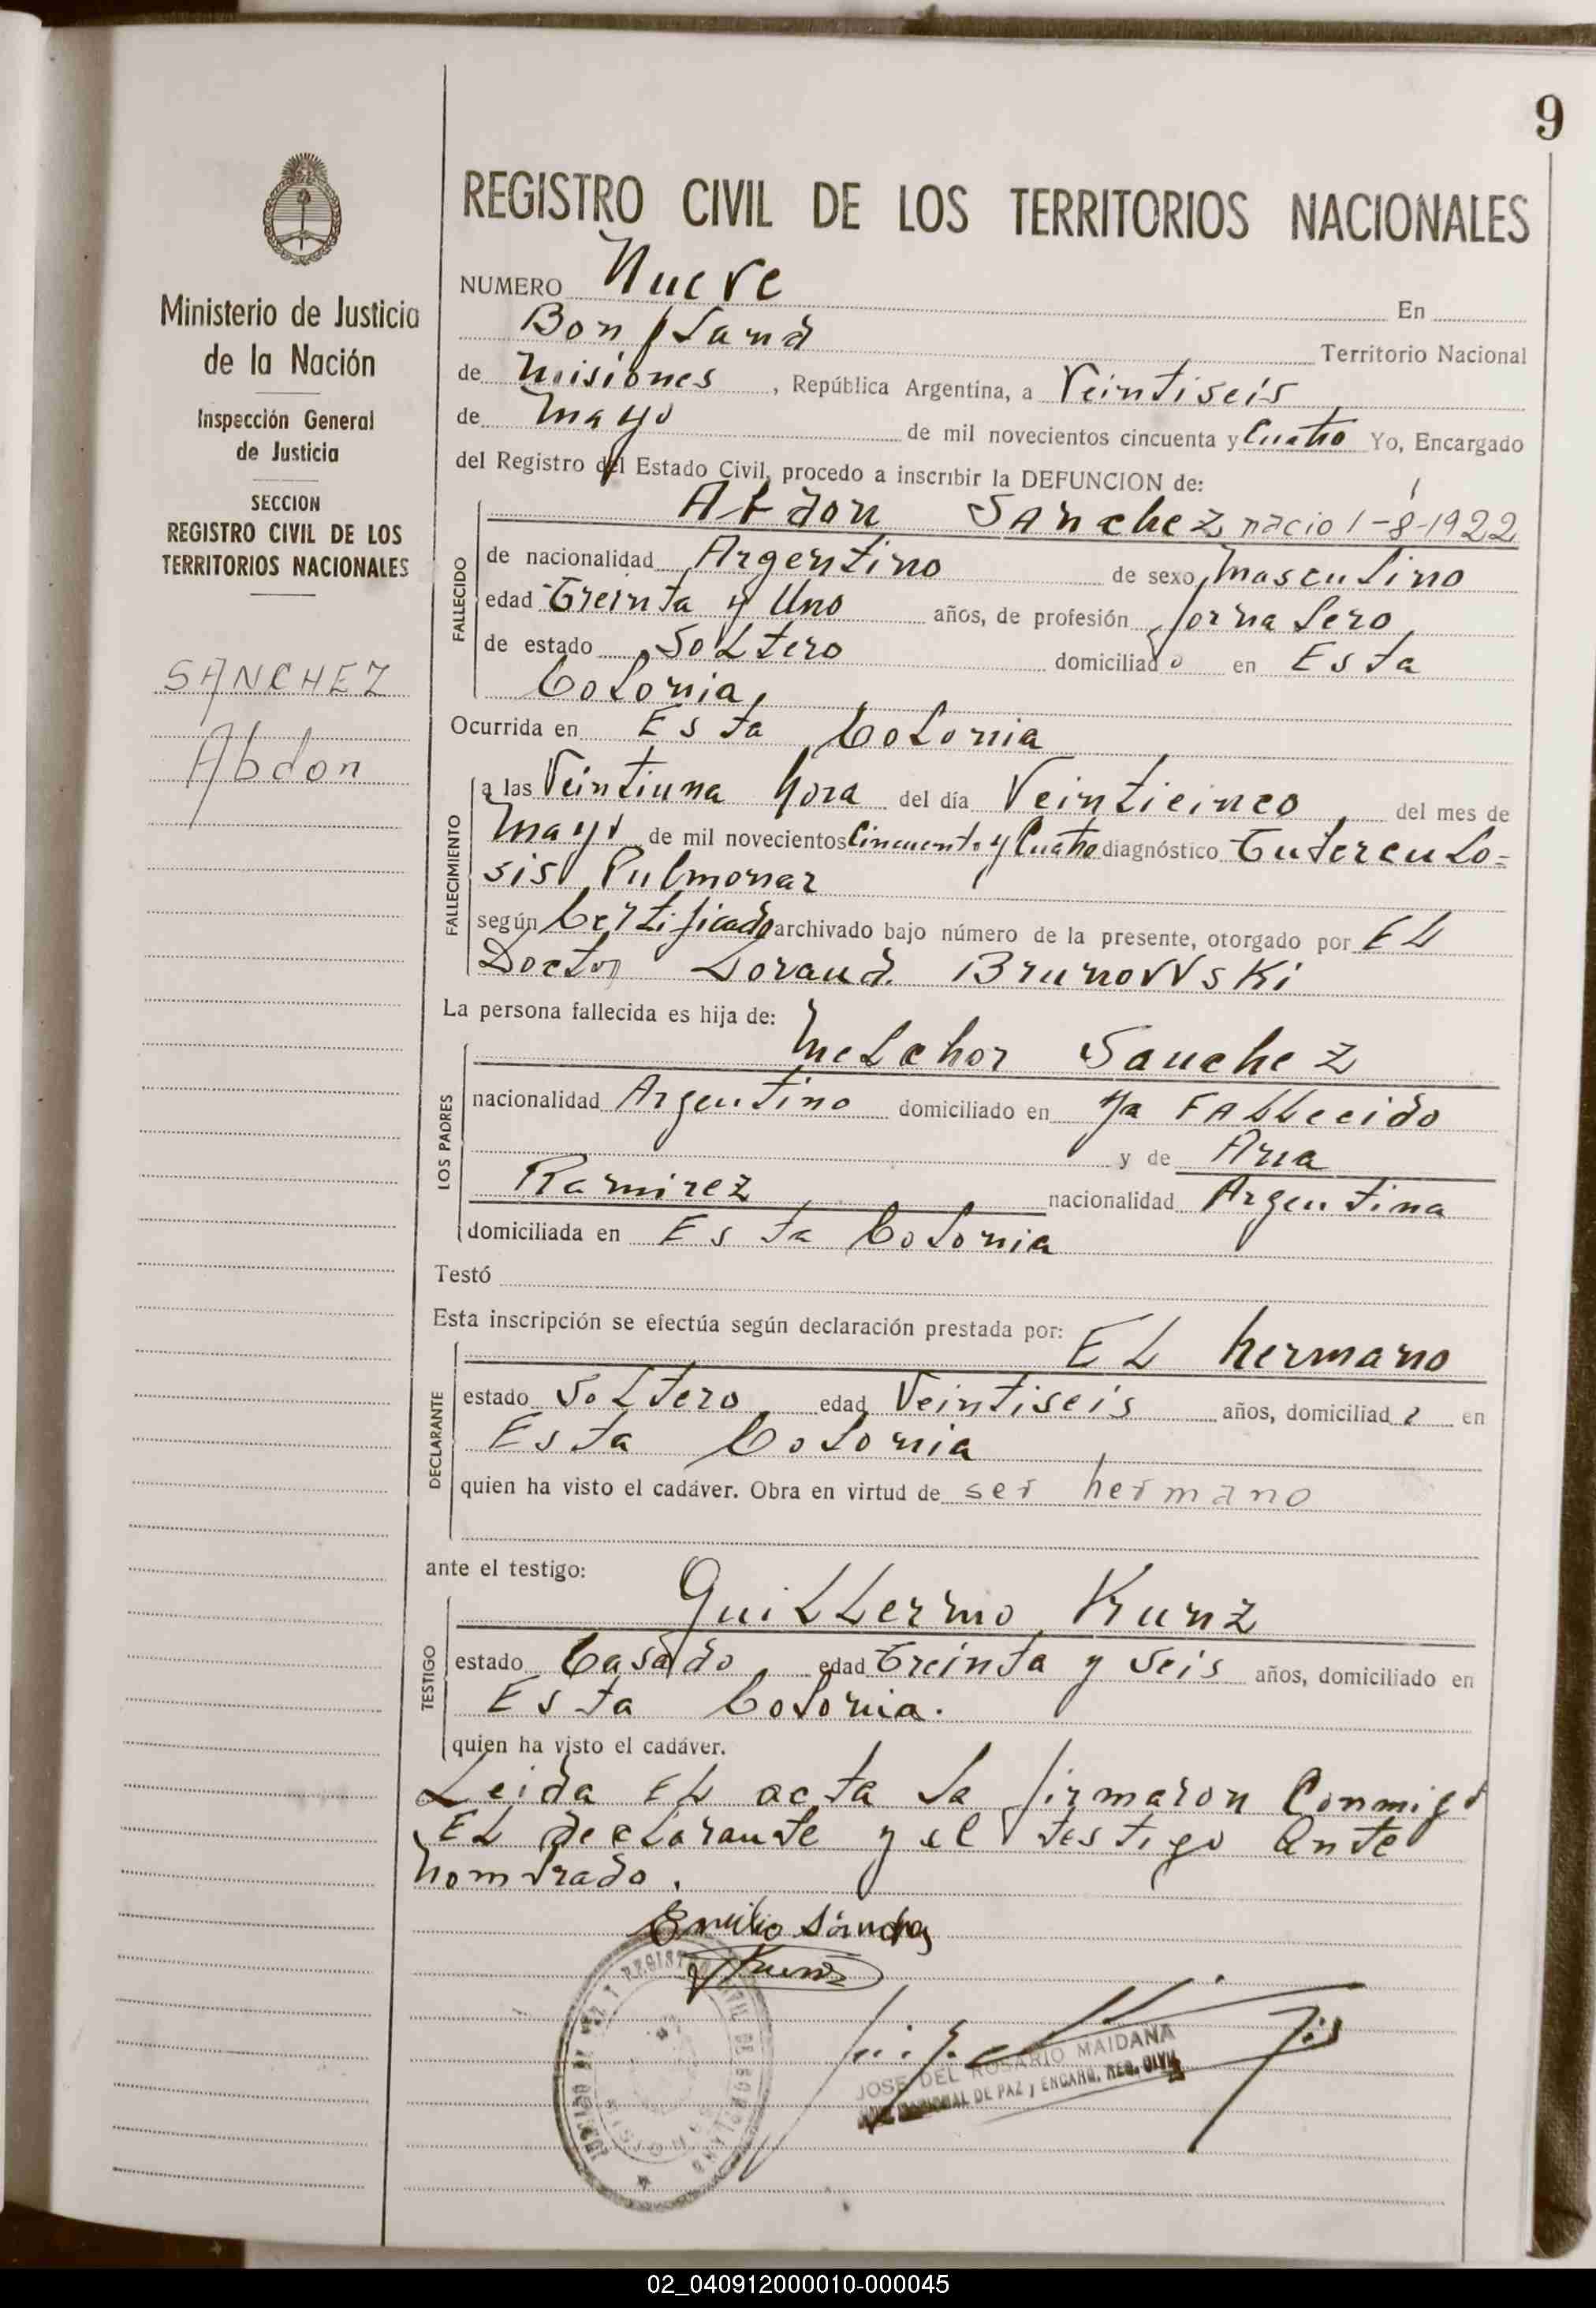 9
REGISTRO CIVIL DE LOS TERRITORIOS NACIONALES
Ministerio de Justicia
de la Nación
Inspección General
de Justicia
SECCION
REGISTRO CIVIL DE LOS
TERRITORIOS NACIONALES
SANCHEZ
Abdon
NUMERO Nueve En
Bonpland Territorio Nacional
de Misiones, República Argentina, a Veintiseis
de Mayo de mil novecientos cincuenta y Cuatro Yo, Encargado
del Registro del Estado Civil, procedo a inscribir la DEFUNCION de:
FALLECIDO
Abdon Sanchez nacio 1-8-1922
de nacionalidad Argentino de sexo Masculino
edad Treinta y Uno años, de profesión Jornalero
de estado Soltero domiciliado en Esta
Colonia
Ocurrida en Esta Colonia
FALLECIMIENTO
a las Veintiuna hora del día Veinticinco del mes de
Mayo de mil novecientos Cincuenta y Cuatro diagnóstico Tuberculo=
sis Pulmonar
según Certificado archivado bajo número de la presente, otorgado por El
Doctor Lorand Brunovvski
La persona fallecida es hija de:
LOS PADRES
Melchor Sanchez
nacionalidad Argentino domiciliado en ya Fallecido
y de Ana
Ramirez nacionalidad Argentina
domiciliada en Esta Colonia
Testó
Esta inscripción se efectúa según declaración prestada por:
DECLARANTE
El hermano
estado Soltero edad Veintiseis años, domiciliado en
Esta Colonia
quien ha visto el cadáver. Obra en virtud de ser hermano
ante el testigo:
TESTIGO
Guillermo Kunz
estado Casado edad Treinta y Seis años, domiciliado en
Esta Colonia.
quien ha visto el cadáver.
Leida el acta la firmaron Conmigo
El declarante y el testigo ante
nombrado.
Emilio Sánchez
Kunz
JOSE DEL ROSARIO MAIDANA
DE PAZ y ENCARG. REG. CIVIL
02_040912000010-000045